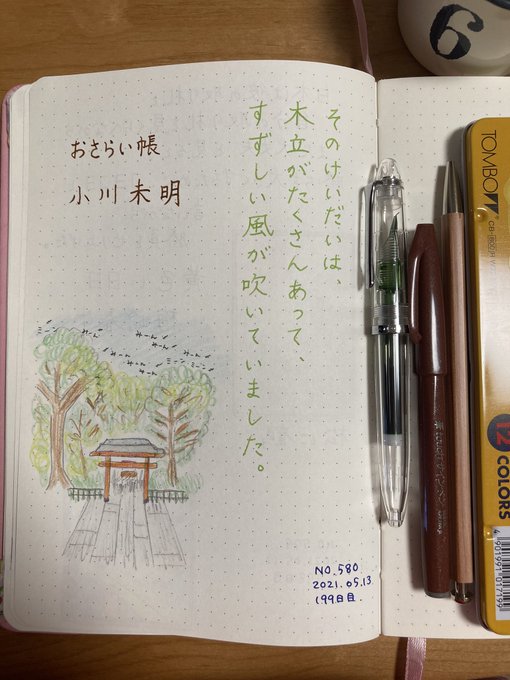 そのけいだいは、
木立がたくさんあって、
すずしい風が吹いていました。
おさらい帳
小川未明
ミーン みーん みーん
みーん
みーん
ミーン ミーン
NO.580
2021.05.13
199日目
6
TOMBOW
12
COLORS
4901991017199